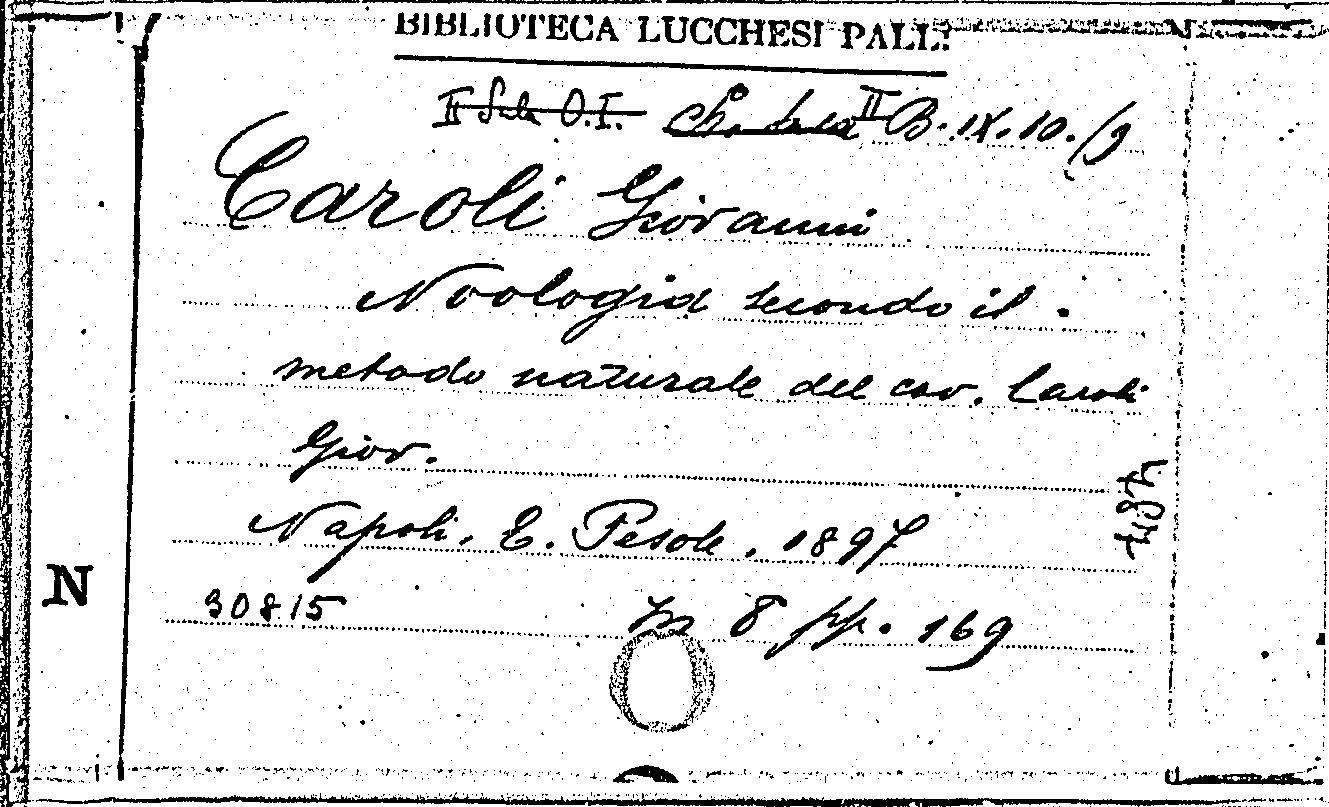 BIBLIOTECA LUCCHESI PALLI
II Sala O.I. II B. IX. 10. /9
Caroli Giovanni
Noologia secondo il
metodo naturale del cav. Caroli
Giov.
Napoli. E. Pesole. 1897
30815 In 8 pp. 169
N